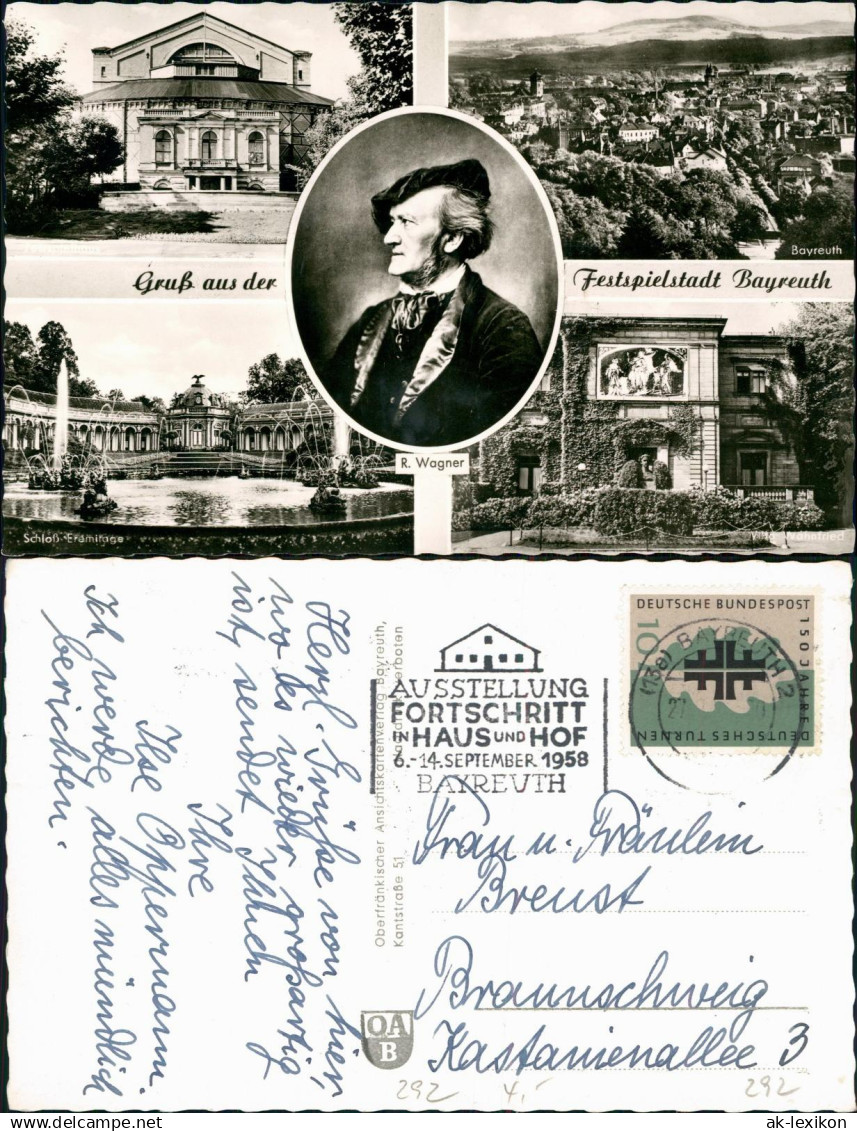 Bayreuth
Gruß aus der
Festspielstadt Bayreuth
R. Wagner
Schloß Eremitage
Villa Wahnfried
Herzl. Grüße von hier,
wo es wieder großartig
ist, sendet Ihnen
Ihre
Ilse Oppermann.
Ich werde alles mündlich
berichten.
Oberfränkischer Ansichtskartenverlag Bayreuth,
Kantstraße 51
verboten
OA
B
AUSSTELLUNG
FORTSCHRITT
IN HAUS UND HOF
6.-14. SEPTEMBER 1958
BAYREUTH
DEUTSCHE BUNDESPOST
150 JAHRE
DEUTSCHES TURNEN
10
(13a) BAYREUTH 2
Frau u. Fräulein
Breust
Braunschweig
Kastanienallee 3
292 4,- 292
ak-lexikon